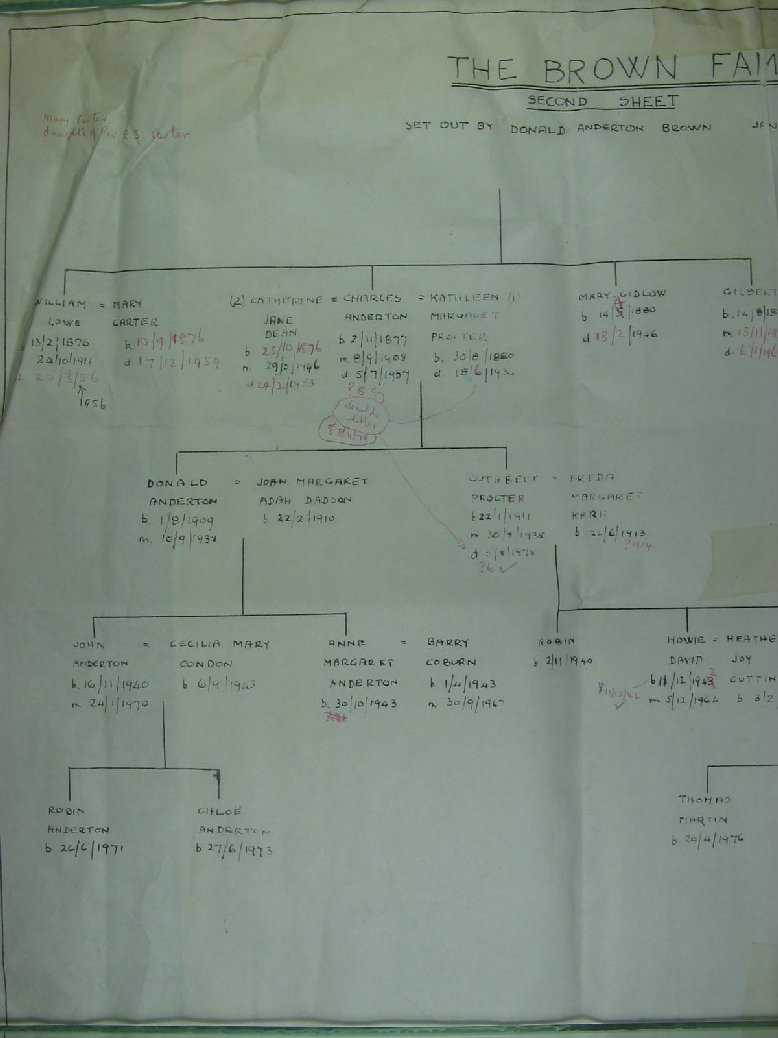 THE BROWN FAM
SECOND SHEET
SET OUT BY DONALD ANDERTON BROWN JAN
Mary Carter
daughter of Rev E.S. Carter
WILLIAM = MARY
LOWE CARTER
13/2/1876 b. 10/9/1876
24/10/1911 d. 17/12/1959
1856
(2) CATHERINE = CHARLES = KATHLEEN (1)
JANE ANDERTON MARGARET
DEAN b 2/11/1877 PROCTER
b 23/10/1876 m 8/9/1908 b. 30/8/1880
d. 5/7/1957
MARY GIDLOW
b 14/ /1880
d 18/2/1946
GILBERT
b. 14/8/18
m. 13/11/19
d. 6/1/196
DONALD = JOAN MARGARET
ANDERTON ADAH DADSON
b. 1/8/1909 b 22/2/1910
m. 10/9/1938
CUTHBERT = FREDA
PROCTER MARGARET
b 22/1/1911 KERR
m 30/8/1938 b 22/6/1913
?1914
?6 ✓
JOHN = CECILIA MARY
ANDERTON CONDON
b. 16/11/1940 b 6/9/1943
m. 24/1/1970
ANNE = BARRY
MARGARET COBURN
ANDERTON b 1/4/1943
b. 30/10/1943 m. 30/9/1967
ROBIN
b 2/11/1940
HOWIE = HEATHE
DAVID JOY
b 11/12/1943 2 CUTTIN
11/12/42 ✓
m 5/12/1964 b 3/2
ROBIN
ANDERTON
b 26/6/1971
CHLOË
ANDERTON
b 27/6/1973
THOMAS
MARTIN
b 20/4/1976